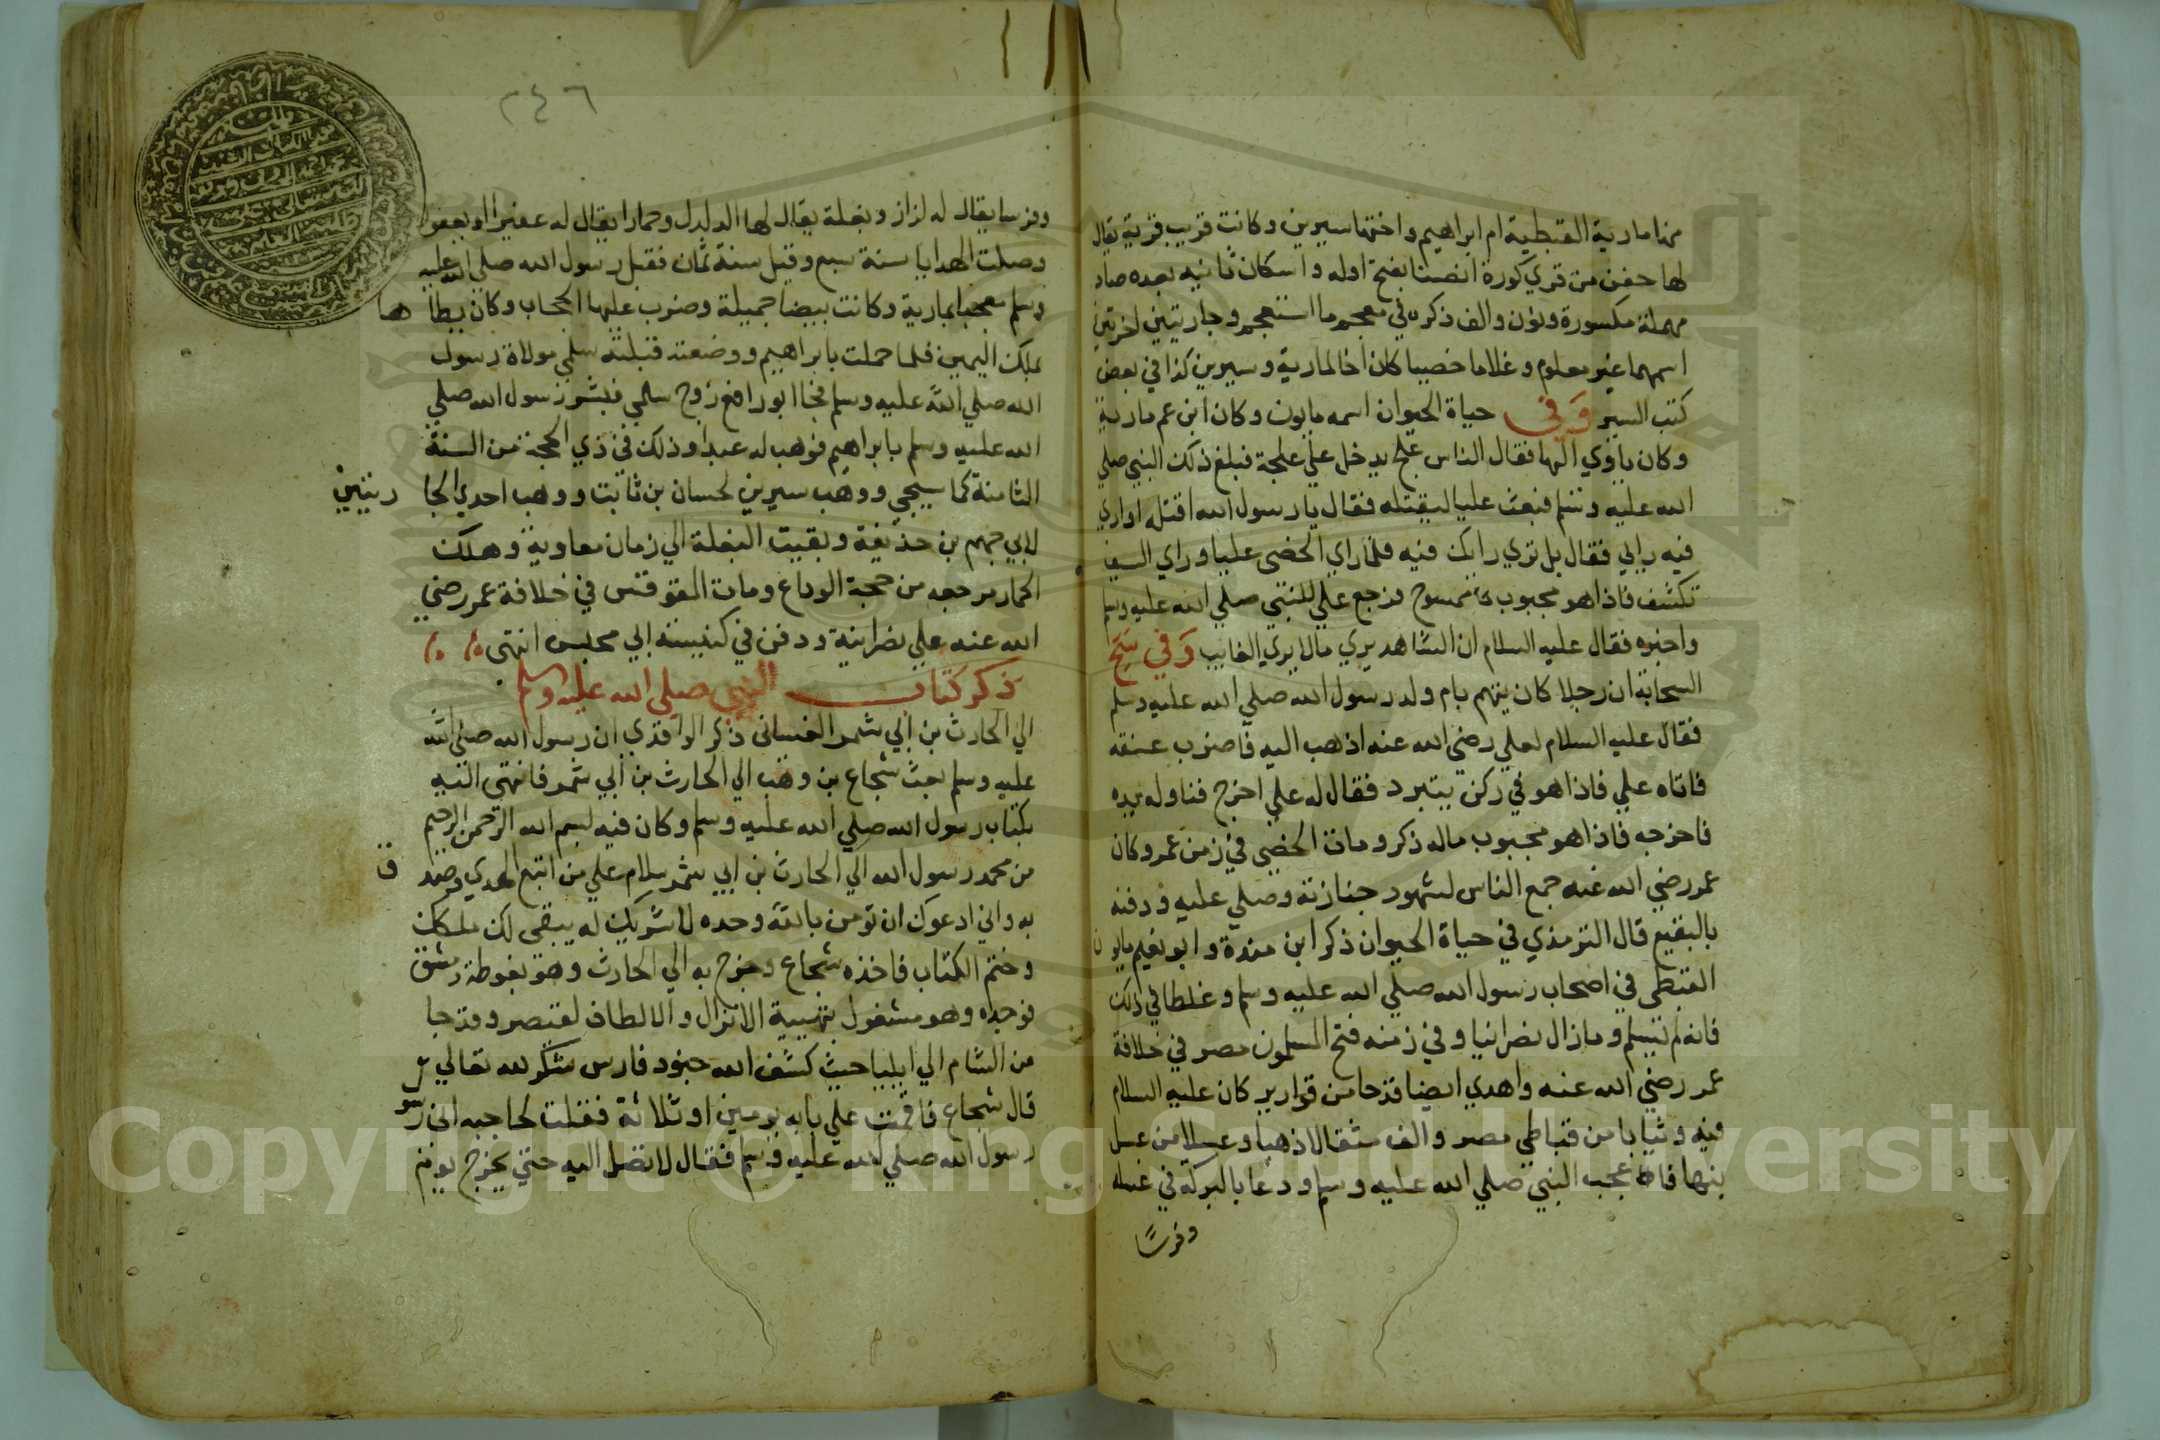 منها مارية القبطية ام ابراهيم واختها سيرين وكانت قريب قرية يقال
لها حفن من قري كورة انصنا بفتح اوله واسكان ثانيه بعده صاد
مهملة مكسورة ونون والف ذكره في معجم ما استعجم وجاريتين اخرتين
اسمهما غير معلوم وغلاما خصيا كان اخا لمارية وسيرين كذا في بعض
كتب السير وفي حياة الحيوان اسمه مابون وكان ابن عم مارية
وكان ياوي اليها فقال الناس علج يدخل علي علجة فبلغ ذلك النبي صلي
الله عليه وسلم فبعث عليا ليقتله فقال يا رسول الله اقتله او اري
فيه رايي فقال بل تري رايك فيه فلما راي الخصي عليا وراي السيف
تكشف فاذا هو مجبوب ممسوح فرجع علي للنبي صلي الله عليه وسلم
واخبره فقال عليه السلام ان الشاهد يري مالا يري الغايب وفي
السحابة ان رجلا كان يتهم بام ولد رسول الله صلي الله عليه وسلم
فقال عليه السلام لعلي رضي الله عنه اذهب اليه فاضرب عنقه
فاتاه علي فاذا هو في ركن يتبرد فقال له علي اخرج فناوله يده
فاخرجه فاذا هو مجبوب ماله ذكر ومات الخصي في زمن عمر وكان
عمر رضي الله عنه جمع الناس لشهود جنازته وصلي عليه ودفنه
بالبقيع قال الترمذي في حياة الحيوان ذكر ابن مندة وابو نعيم مابون
القبطي في اصحاب رسول الله صلي الله عليه وسلم وغلطا في ذلك
فانه لم يسلم وما زال نصرانيا وفي زمنه فتح المسلمون مصر في خلافة
عمر رضي الله عنه واهدي ايضا قدحا من قوارير كان عليه السلام
فيه وثيابا من قباطي مصر والف مثقالا ذهبا وعسلا من عسل
بنها فاعجب النبي صلي الله عليه وسلم ودعا بالبركة في عسله
وفرسًا
٢٤٦
وفرسا يقال له لزاز وبغلة يقال لها الدلدل وحمارا يقال له عفيرا او يعفور
وصلت الهدايا سنة سبع وقيل سنة ثمان فقبل رسول الله صلي الله عليه
وسلم معجبا بمارية وكانت بيضا جميلة وضرب عليها الحجاب وكان يطاها
بملك اليمين فلما حملت بابراهيم ووضعته قبلته سلمي مولاة رسول
الله صلي الله عليه وسلم فجا ابو رافع زوج سلمي فبشر رسول الله صلي
الله عليه وسلم بابراهيم فوهب له عبدا وذلك في ذي الحجة من السنة
الثامنة كما سيجي ووهب سيرين لحسان بن ثابت ووهب احدي الجاريتين
لابي جهم بن حذيفة وبقيت البغلة الي زمان معاوية وهلك
الحمار مرجعه من حجة الوداع ومات المقوقس في خلافة عمر رضي
الله عنه علي نصرانية ودفن في كنيسة ابي محلس انتهي
ذكر كتاب النبي صلي الله عليه وسلم
الي الحارث بن ابي شمر الغساني ذكر الواقدي ان رسول الله صلي الله
عليه وسلم بعث شجاع بن وهب الي الحارث بن ابي شمر فانتهي اليه
بكتاب رسول الله صلي الله عليه وسلم وكان فيه بسم الله الرحمن الرحيم
من محمد رسول الله الي الحارث بن ابي شمر سلام علي من اتبع الهدي وصدق
به واني ادعوك ان تومن بالله وحده لا شريك له يبقي لك ملكك
وختم الكتاب فاخذه شجاع وخرج به الي الحارث وهو بغوطة دمشق
فوجده وهو مشغول بتهيية الانزال والالطاف لقيصر وقد جا
من الشام الي ايليا حيث كشف الله جنود فارس شكر لله تعالي
قال شجاع فاقمت علي بابه يومين او ثلاثة فقلت لحاجبه اني رسو
رسول الله صلي الله عليه وسلم فقال لا تصل اليه حتي يخرج يوم
Copyright © King Saud University